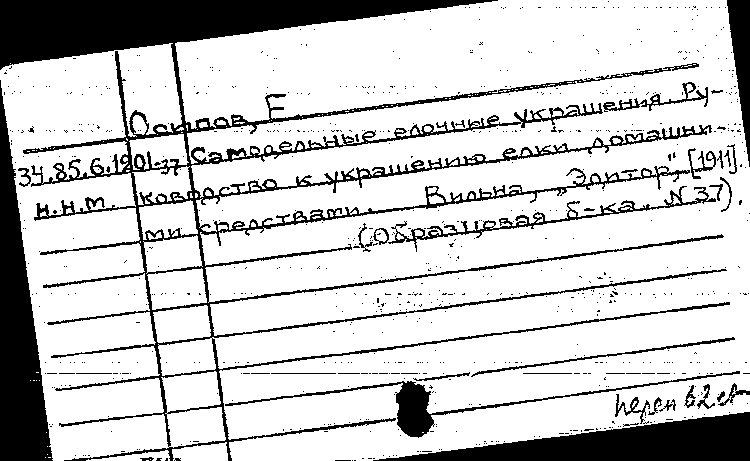 Осипов, Е
34.85.6.1201-37 Самодельные елочные украшения. Ру-
н.н.т. ководство к украшению елки домашни-
ми средствами. Вильна, „Эдитор", [1911].
(Образцовая б-ка. N 37).
перен 62